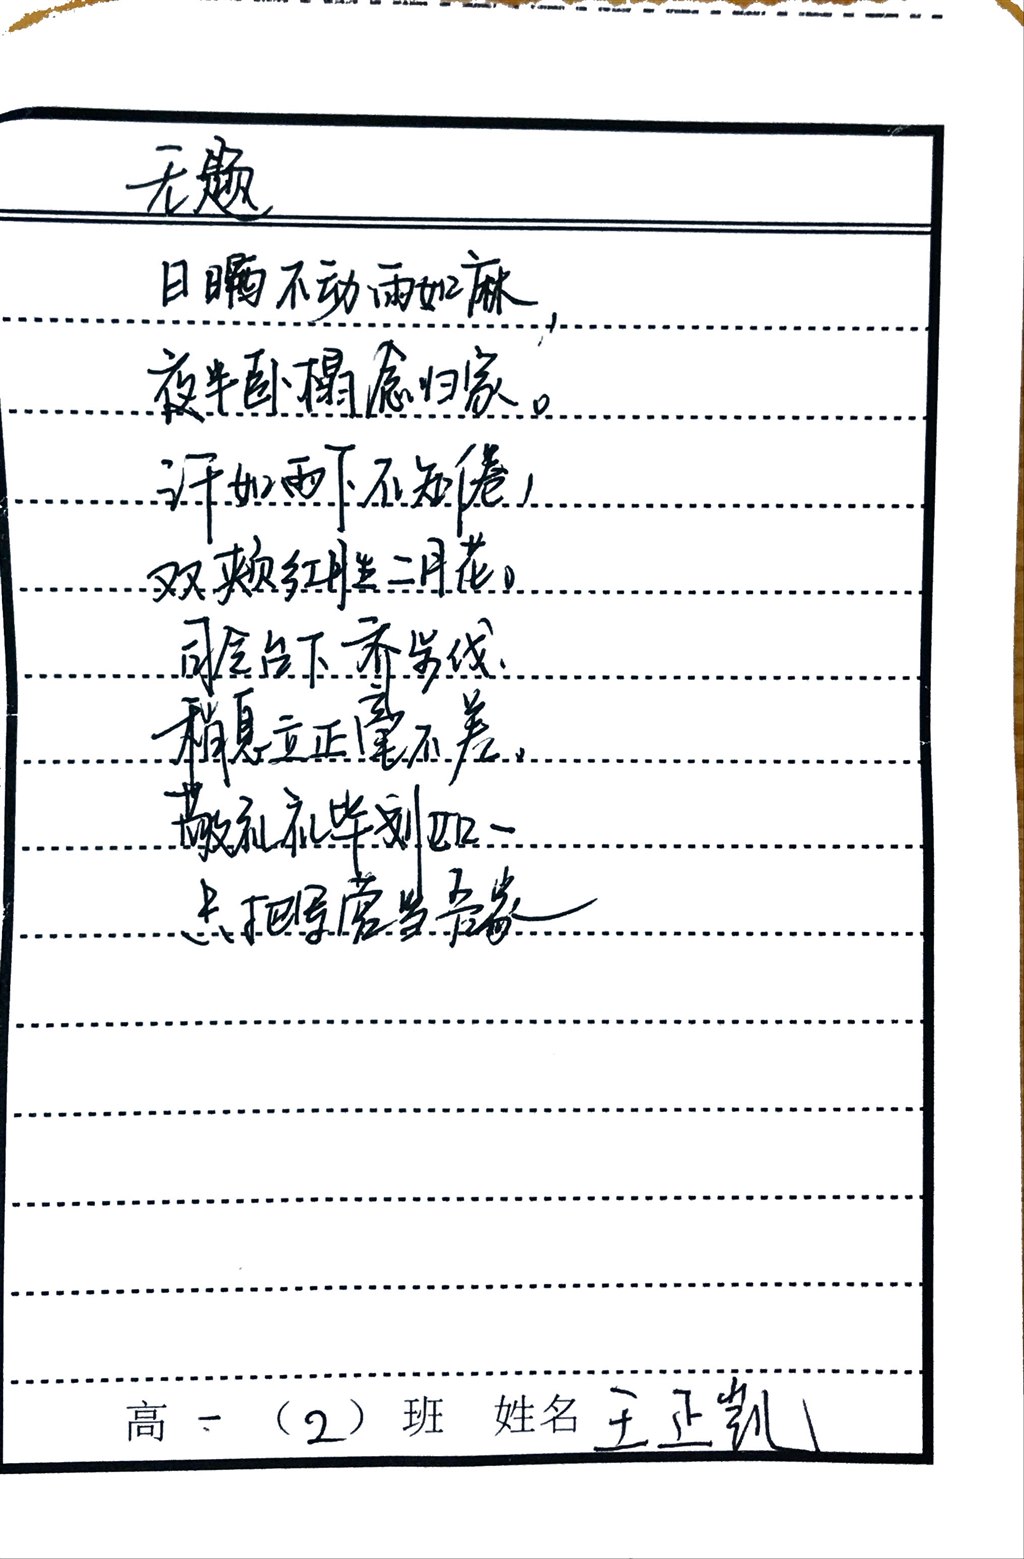 无题
日晒不动雨如麻,
夜半卧榻念归家。
汗如雨下不知倦,
双颊红胜二月花。
司令台下齐步伐、
稍息立正毫不差。
敬礼礼毕划一
只把军营当吾家
高一(2)班 姓名 王正凯